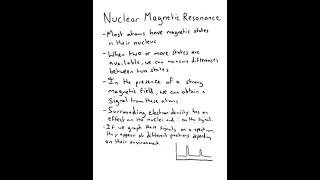 Nuclear Magnetic Resonance
- Most atoms have magnetic states
in their nucleus
- When two or more states are
available, we can measure differences
between two states
- In the presence of a strong
magnetic field, we can obtain a
signal from these atoms
- Surrounding electron density has an
effect on the nuclei and ∴ on the signal.
- If we graph these signals on a spectrum,
they appear at different positions depending
on their environment